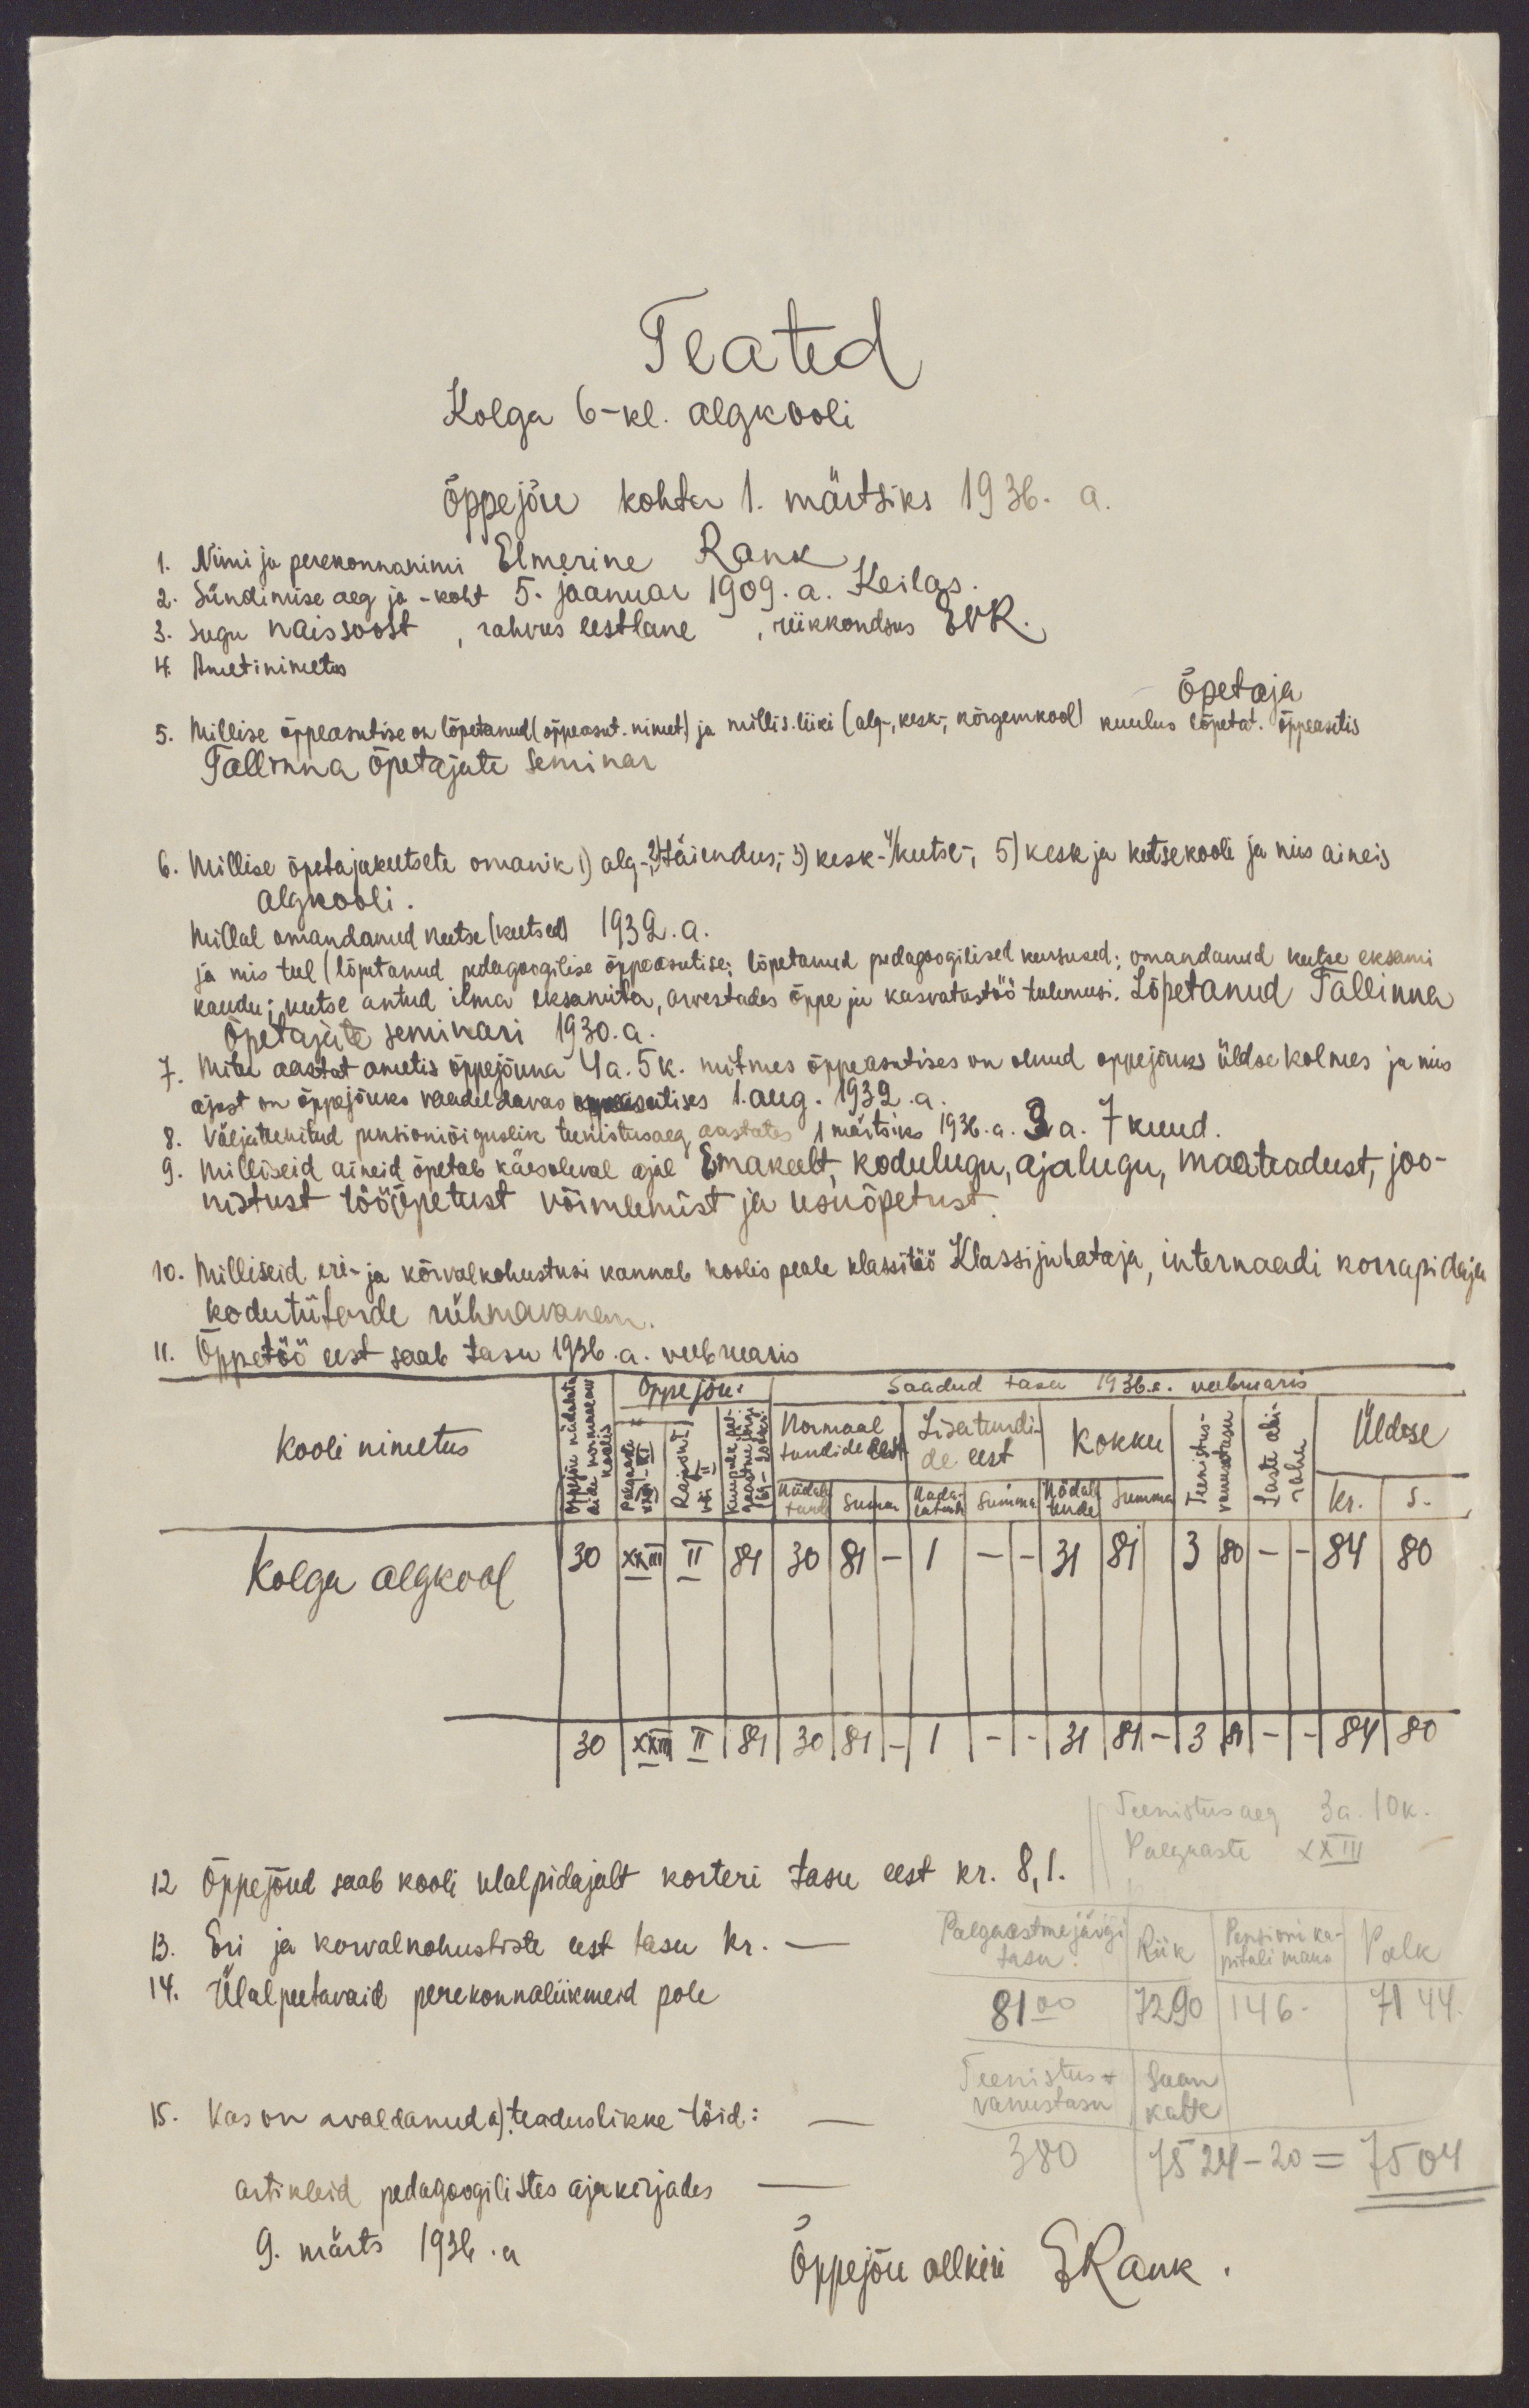 Teated
Kolga 6-kl. algkooli
õppejõu kohta 1. märtsiks 1936. a.
1. Nimi ja perekonnanimi Elmerine Rank
2. Sündimise aeg ja -koht 5. jaanuar 1909. a. Keilas.
3. Sugu naissoost , rahvus eestlane , riikkondsus EVR.
4. Ametinimetus
õpetaja
5. Millise õppeasutise on lõpetanud (õppeasut. nimet) ja millis. liiki (alg-, kesk-, kõrgemkool) kuulus lõpetat. õppeasutis
Tallinna õpetajate Seminar
6. Millise õpetajakutsete omanik 1) alg-, 2) täiendus-, 3) kesk- 4) kutse-, 5) kesk ja kutsekooli ja mis aineis
algkooli.
Millal omandanud kutse (kutsed) 1932. a.
ja mis teel (lõpetanud pedagoogilise õppeasutise; lõpetanud pedagoogilised kursused; omandanud kutse eksami
kaudu; kutse antud ilma eksamita, arvestades õppe ja kasvatustöö tulemusi. Lõpetanud Tallinna
Õpetajate seminari 1930. a.
7. Mitu aastat ametis õppejõuna 4 a. 5 k. mitmes õppeasutises on olnud oppejõuks üldse kolmes ja mis
ajast on õppejõuks vaadeldavas õppeasutises 1. aug. 1932. a.
8. Väljateenitud pensioniõiguslik teenistusaeg aastates 1 märtsiks 1936. a. 3 a. 7 kuud.
9. Milliseid aineid õpetab käesoleval ajal Emakeelt, kodulugu, ajalugu, maateadust, joo-
nistust tööõpetust võimlemist ja usuõpetust.
10. Milliseid eri- ja kõrvalkohustusi kannab koolis peale klassitöö Klassijuhataja, internaadi korrapidaja
kodutütarde rühmavanem.
11. Õppetöö eest saab tasu 1936. a. veebruaris
Kooli nimetus
Õppejõu
Saadud tasu 1936. a. veebruaris
Normaal tundide eest
Lisatundi-
de eest
Kokku
Teenistus-
vanustasu
Laste abi-
raha
Üldse
Rajoni I
või II
Nädala tunde
Summa
Summa
Nädala tunde
Summa
Kr.
S.
Kolga algkool 30 XXIII II 81 30 81 - 1 - - 31 81 3 80 - - 84 80
30 XXIII II 81 30 81 - 1 - - 31 81 - 3 81 - - 84 80
Teenistusaeg 3a. 10k.
Palgaaste XXIII
12 Õppejõud saab kooli ülalpidajalt korteri tasu eest kr. 8,1.
13. Eri ja korvalkohustiste eest tasu kr. —
14. Ülalpeetavaid perekonnaliikmeid pole
Palgaastme järgi
tasu
Riik
Pensioni ka-
pitali maks
Palk
81 00 7290 146- 7144.
Teenistus-
vanustasu
Saan
katte
380 7524-20=7504
15. Kas on avaldanud a) teaduslikke töid: —
artikleid pedagoogilistes ajakirjades —
9. märts 1936. a
Õppejõu allkiri ERank.